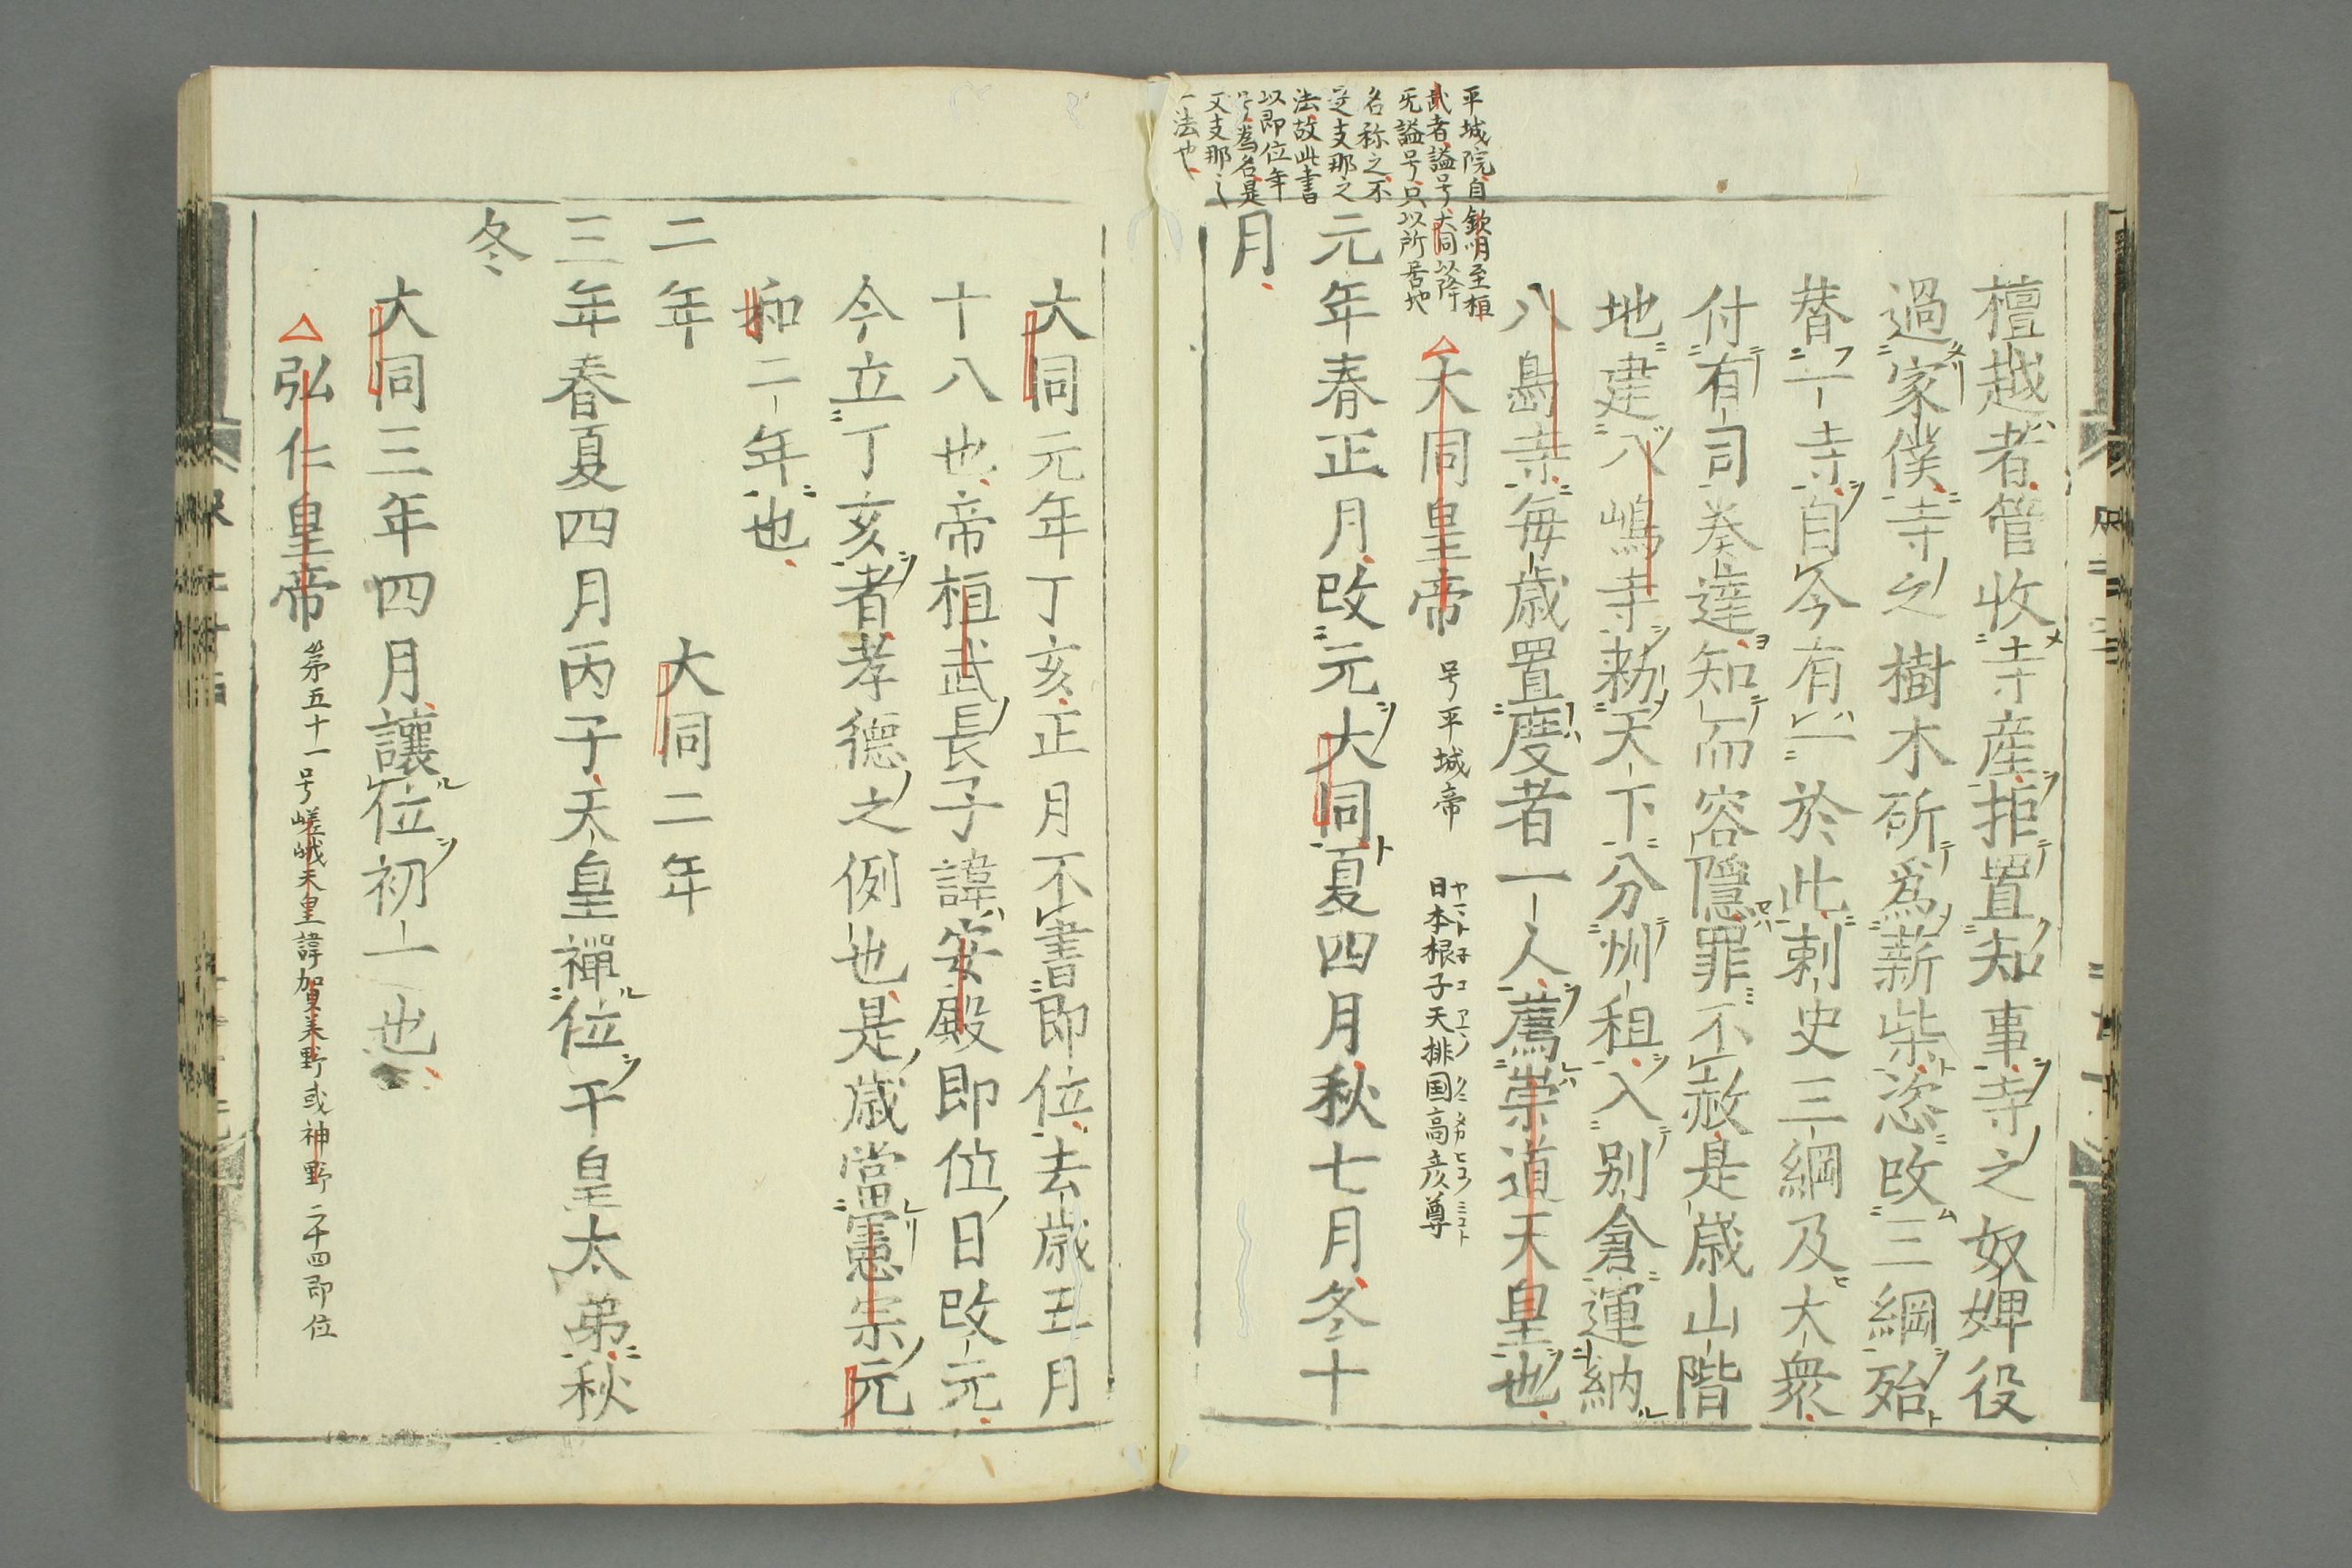 平城院自欽明至桓
武者謚号大同以降
旡謚号只以所居地
名称之不
是支那之
法故此書
以即位年
号為名是
又支那之
一法也
檀越者管收寺産拒置知事寺之奴婢役
過家僕寺之樹木斫爲薪柴恣改三綱殆
替一寺自今有一於此刺史三綱及大衆
付有司奏達知而容隱罪不赦是歳山階
地建八嶋寺勑天下分州租入別倉運納
八島寺毎歳置度者一人薦崇道天皇也
大同皇帝 号平城帝 日本根子天排国高彦尊
元年春正月改元大同夏四月秋七月冬十
月
大同元年丁亥正月不書即位去歳五月
十八也帝桓武長子諱安殿即位日改元
今立丁亥者孝德之例也是歳當憲宗元
和二年也
二年 大同二年
三年春夏四月丙子天皇禪位干皇太弟秋
冬
大同三年四月讓位初一也
弘仁皇帝 第五十一号嵯峨天皇諱加賀美野或神野二十四即位